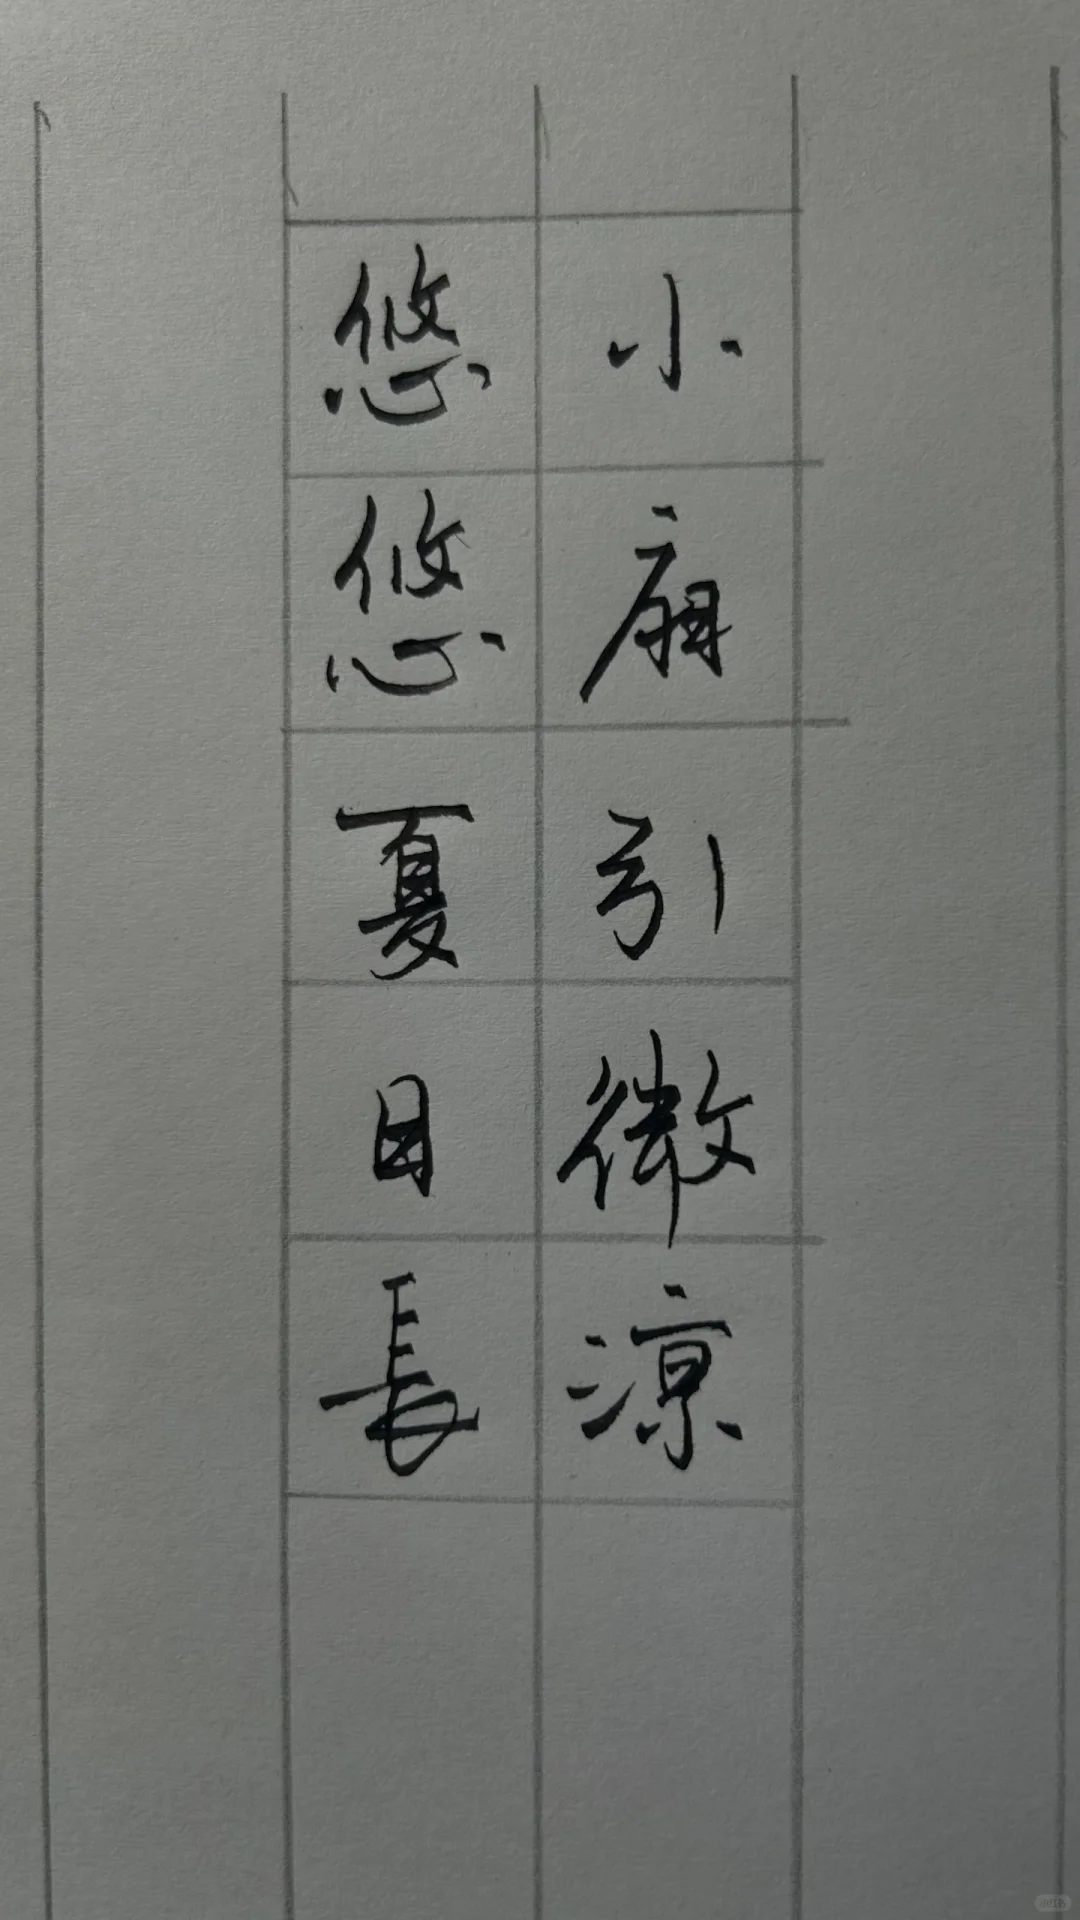 小扇引微涼
悠悠夏日長